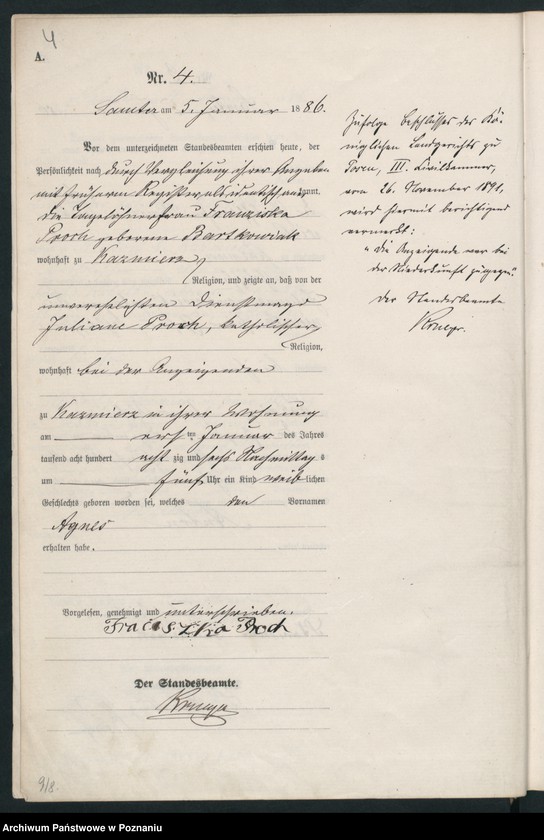 4
A.
Nr. 4.
Samter am 5. Januar 1886.
Vor dem unterzeichneten Standesbeamten erschien heute, der
Persönlichkeit nach durch Vergleichung ihrer Angaben
mit früherem Register als identisch anerkannt,
die Tagelöhnerfrau Franziska
Proch geborene Bartkowiak
wohnhaft zu Kazmierz,
Religion, und zeigte an, daß von der
unverehelichten Dienstmagd
Juliane Proch, katholischer
Religion,
wohnhaft bei der Anzeigenden
zu Kazmierz in ihrer Wohnung
am ersten Januar des Jahres
tausend acht hundert acht zig und sechs Nachmittags
um fünf Uhr ein Kind weiblichen
Geschlechts geboren worden sei, welches den Vornamen
Agnes
erhalten habe.
Vorgelesen, genehmigt und unterschrieben.
Proch
Der Standesbeamte.
Krueger
Zufolge Beschlusses des Kö-
niglichen Landgerichts zu
III. Civilkammer,
vom 26. November 1891,
wird hiermit berichtigend
vermerkt:
"die Anzeigende war bei
der Niederkunft zugegen."
Der Standesbeamte
Krueger.
9/8.
Archiwum Państwowe w Poznaniu